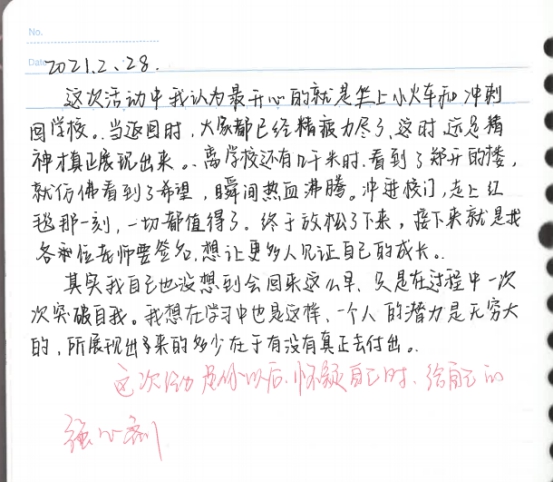 No.
Date 2021.2.28.
这次活动中我认为最开心的就是坐上小火车和冲刺
回学校。当返回时,大家都已经精疲力尽了,这时远足精
神才真正展现出来。离学校还有几千米时,看到了郑开的楼,
就仿佛看到了希望,瞬间热血沸腾。冲进校门,走上红
毯那一刻,一切都值得了。终于放松了下来,接下来就是找
各位老师要签名,想让更多人见证自己的成长。
其实我自己也没想到会回来这么早,只是在过程中一次
次突破自我。我想在学习中也是这样,一个人的潜力是无穷大
的,所展现出来的多少在于有没有真正去付出。
这次活动是你以后怀疑自己时,给自己的
强心剂